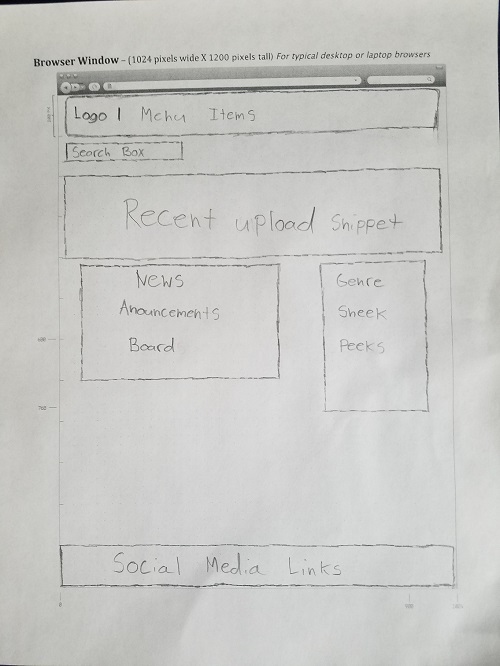 Browser Window – (1024 pixels wide X 1200 pixels tall) For typical desktop or laptop browsers
Logo | Menu Items
Search Box
Recent upload Snippet
News
Anouncements
Board
Genre
Sheek
Peeks
Social Media Links
0